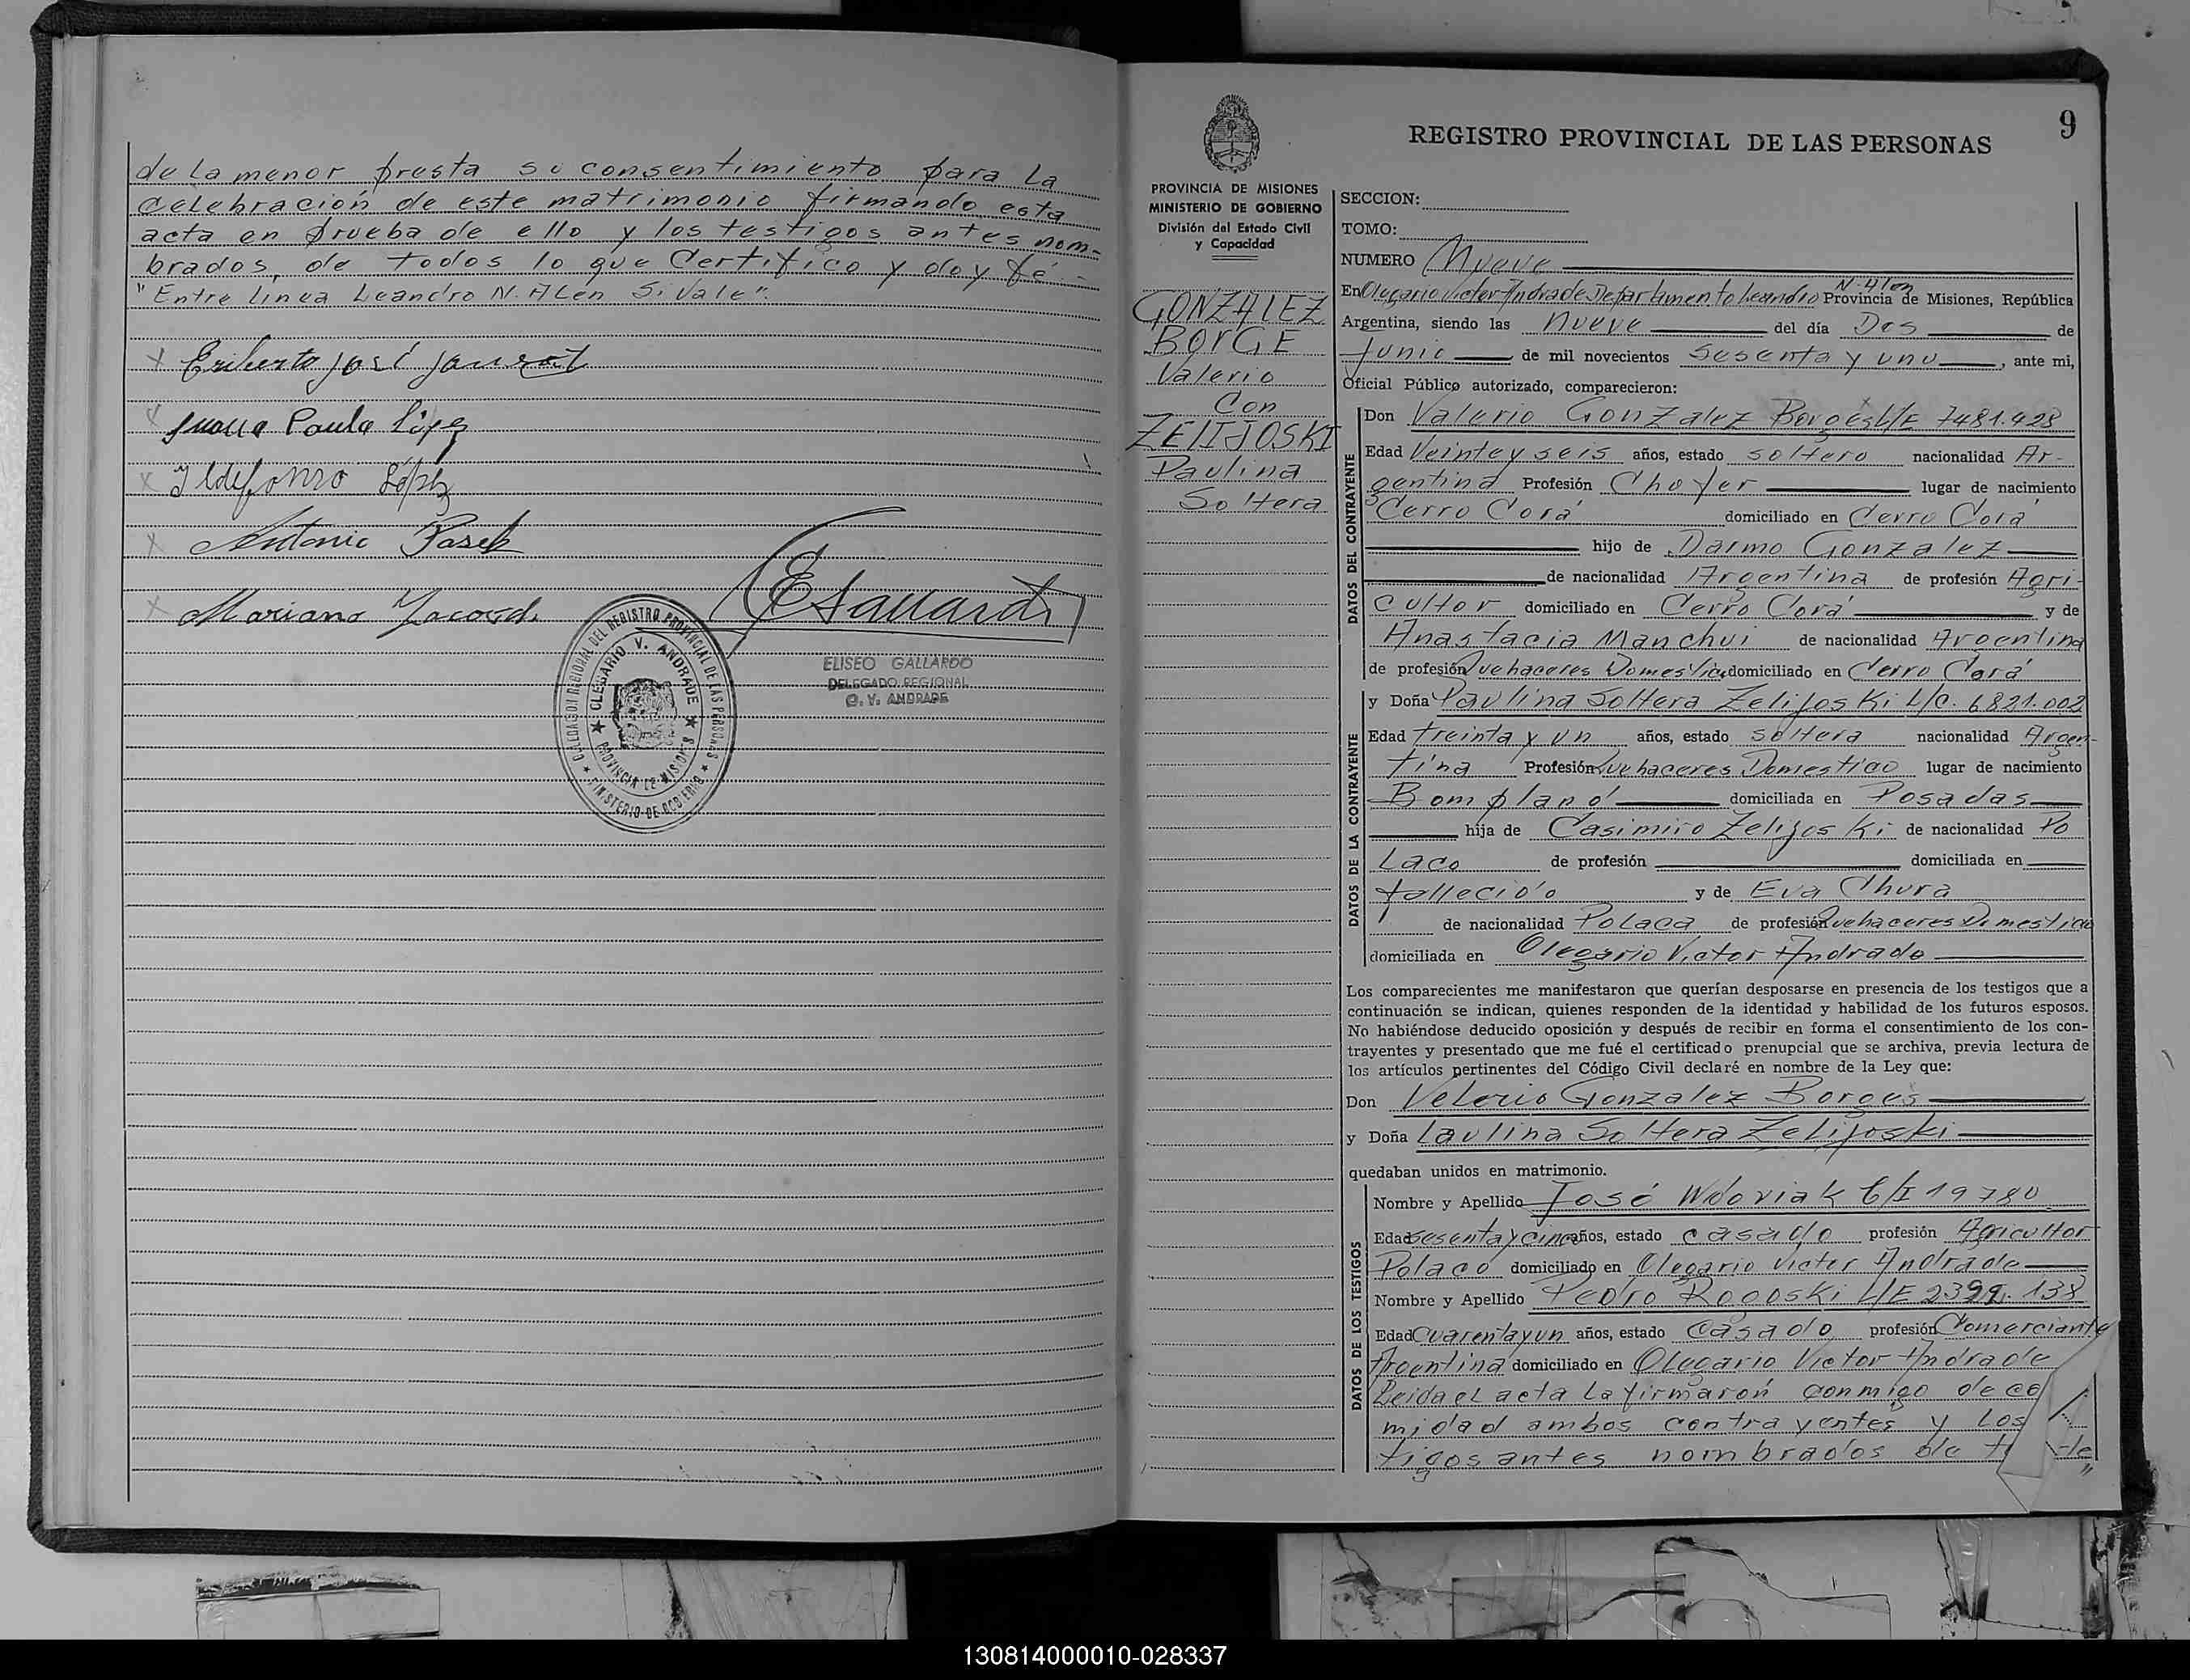 de la menor presta su consentimiento para la
celebración de este matrimonio firmando esta
acta en prueba de ello y los testigos antes nom-
brados, de todos lo que Certifico y doy fé.-
"Entre línea Leandro N. ALen Si Vale".
Eriberto José
Juana Paula López
Ildefonzo López
Antonio Pasek
Mariano
EGallardo
DELEGACION REGIONAL DEL REGISTRO PROVINCIAL DE LAS PERSONAS
OLEGARIO V. ANDRADE
PROVINCIA DE MISIONES
MINISTERIO DE GOBIERNO
ELISEO GALLARDO
DELEGADO REGIONAL
O. V. ANDRADE
9
REGISTRO PROVINCIAL DE LAS PERSONAS
PROVINCIA DE MISIONES
MINISTERIO DE GOBIERNO
División del Estado Civil
y Capacidad
GONZALEZ
BORGE
Valerio
Con
ZELIJOSKI
Paulina
Soltera
SECCION:
TOMO:
NUMERO Nueve
En Olegario Victor Andrade Departamento Leandro N. Alen Provincia de Misiones, República
Argentina, siendo las Nueve del día Dos de
Junio de mil novecientos Sesenta y uno, ante mi,
Oficial Público autorizado, comparecieron:
DATOS DEL CONTRAYENTE
Don Valerio Gonzalez Borges L/E 7481.928
Edad Veinte y seis años, estado soltero nacionalidad Ar-
gentina Profesión Chofer lugar de nacimiento
Cerro Corá domiciliado en Cerro Corá
hijo de Darmo Gonzalez
de nacionalidad Argentina de profesión Agri-
cultor domiciliado en Cerro Corá y de
Anastacia Manchui de nacionalidad Argentina
de profesión Quehaceres Domestico domiciliado en Cerro Corá
DATOS DE LA CONTRAYENTE
y Doña Paulina Soltera Zelijoski L/C. 6821.002
Edad treinta y un años, estado soltera nacionalidad Argen-
tina Profesión Quehaceres Domestico lugar de nacimiento
Bompland domiciliada en Posadas
hija de Casimiro Zelijoski de nacionalidad Po
Laco de profesión domiciliada en
fallecido y de Eva Chura
de nacionalidad Polaca de profesión Quehaceres Domestico
domiciliada en Olegario Victor Andrade
Los comparecientes me manifestaron que querían desposarse en presencia de los testigos que a
continuación se indican, quienes responden de la identidad y habilidad de los futuros esposos.
No habiéndose deducido oposición y después de recibir en forma el consentimiento de los con-
trayentes y presentado que me fué el certificado prenupcial que se archiva, previa lectura de
los artículos pertinentes del Código Civil declaré en nombre de la Ley que:
Don Velerio Gonzalez Borges
y Doña Paulina Soltera Zelijoski
quedaban unidos en matrimonio.
DATOS DE LOS TESTIGOS
Nombre y Apellido José Wdoviak C/I 19780
Edad Sesenta y cinco años, estado casado profesión Agricultor
Polaco domiciliado en Olegario Victor Andrade
Nombre y Apellido Pedro Rogoski L/E 2399.138
Edad Cuarenta y un años, estado Casado profesión Comerciante
Argentina domiciliado en Olegario Victor Andrade
Leida el acta la firmarón conmigo de co
midad ambos contrayentes y Los
tigos antes nombrados de
130814000010-028337